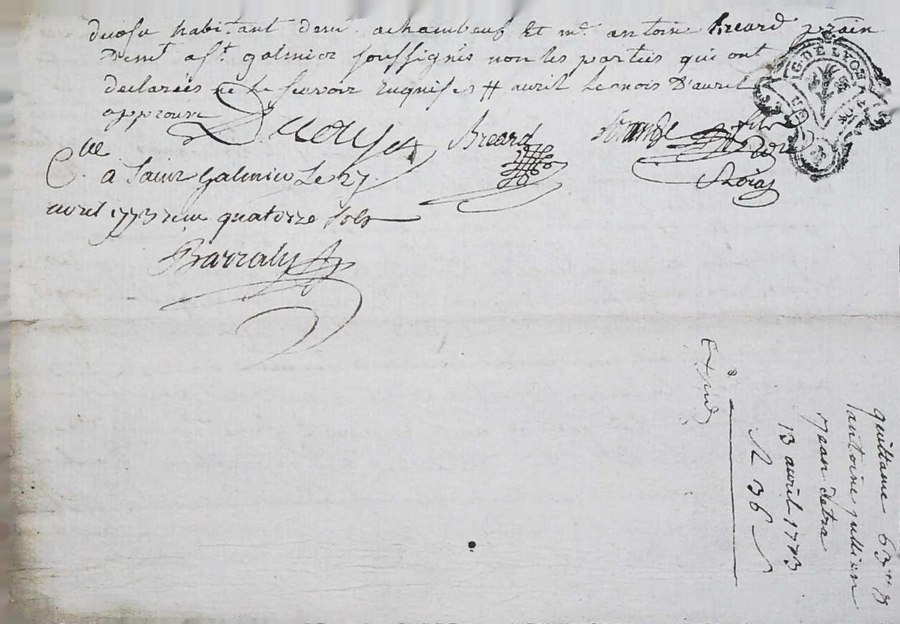 habitant demt achambeuf Et me antoine Breard pratin
Demt a st galmier soussignés non les parties qui ont
declarées ne le scavoir requises # avril le mois d'avril
approuvé
Ducoing Breard
Clle
a Saint Galmier Le 27
avril 1773 reçu quatorze sols
Barralys
GN DE LYON
quittance 63tt 8
antoine jullien
jean detra
13 avril 1773
N 36
Expedié